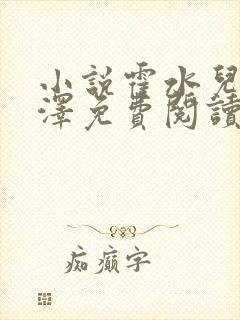 小說霍水兒
澤免費閱讀
痴癲字